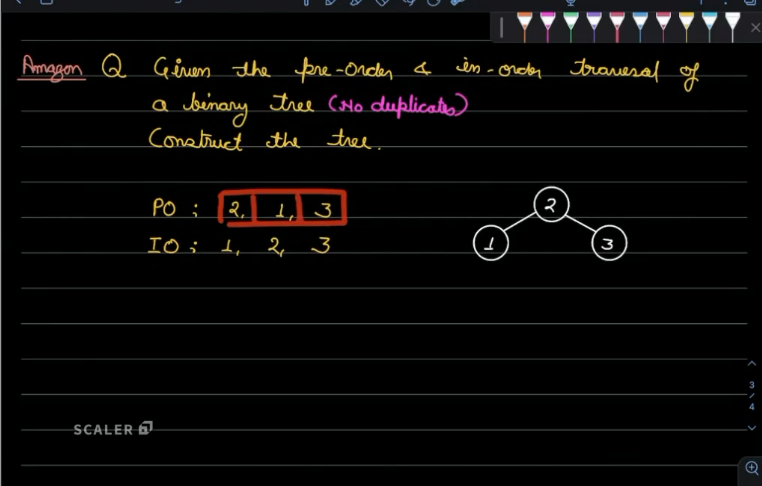 Amazon Q Given the pre-order & in-order traversal of
a binary tree (No duplicates)
Construct the tree.
PO : 2, 1, 3
IO : 1, 2, 3
2
1 3
SCALER
3
4